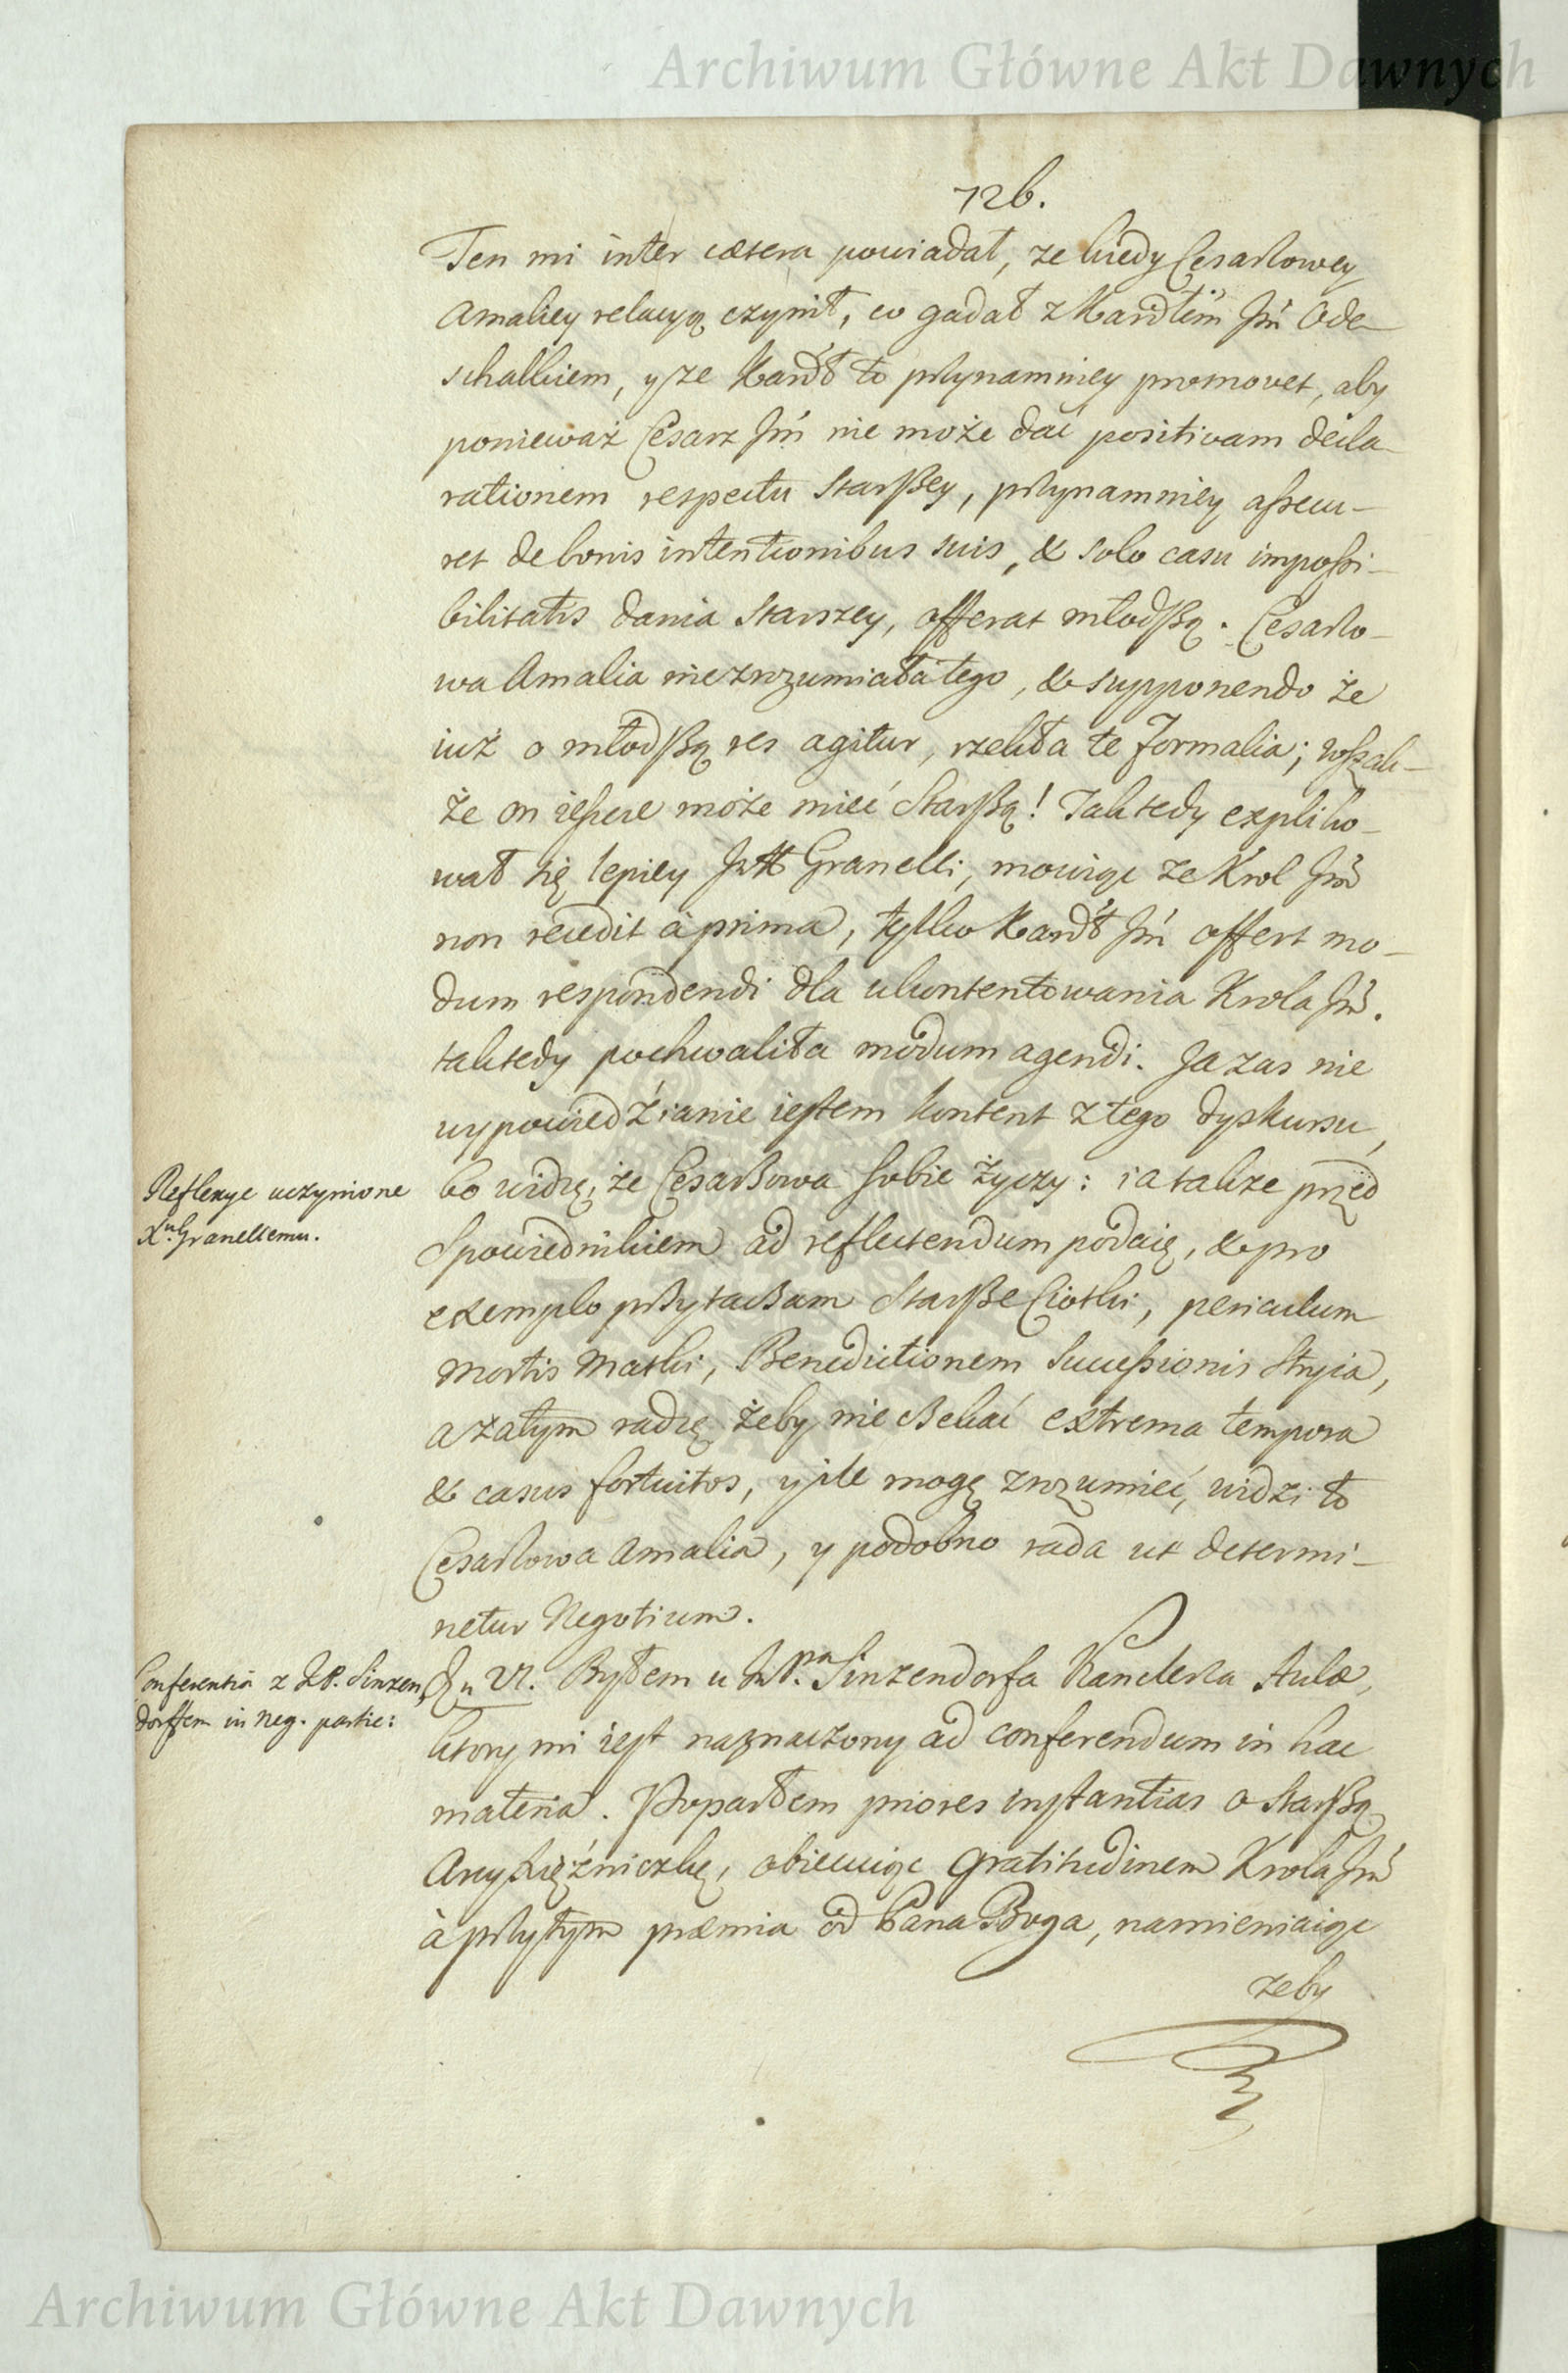 Archiwum Główne Akt Dawnych
726.
Ten mi inter cætera powiadał, ze kiedy Cesarzowey
Amaliey relacyą czynił, co gadał z Kardłem Jm Ode-
schalkiem, y ze Kardł to przynamniey promovet, aby
ponieważ Cesarz Jm nie może dać positivam decla-
rationem respectu Starßey, przynamniey assecu-
ret de bonis intentionibus suis, & solo casu impossi-
bilitatis dania Starszey, offerat młodßą. Cesarzo-
wa Amalia nie zrozumiała tego, & supponendo że
iuż o młodßą res agitur, rzekła te formalia; wszak-
że on ieszcze może mieć Starßą! Tak tedy expliko-
wał się lepiey JXK Granelli, mowiąc ze Krol Jm
non recedit à prima, tylko Kardł Jm offert mo-
dum respondendi dla ukontentowania Krola Jm.
tak tedy pochwaliła modum agendi. Ja zas nie
wypowiedźianie iestem kontent z tego dyskursu,
Reflexye uczynione
Xu Granellemu.
bo widzę, że Cesarzowa sobie życzy: ia takze przed
Spowiednikiem ad reflectendum podaię, & pro
exemplo przytaczam Starße Ciotki, periculum
mortis Matki, Benedictionem Successionis Stryia,
a zatym radzę żeby nie czekać extrema tempora
& casus fortuitos, y ile mogę zrozumieć, widzi to
Cesarzowa Amalia, y podobno rada ut determi-
netur Negotium.
Conferentia z JP. Sinzen
dorffem in neg. partic:
Dn VI. Byłem u JmPna Sinzendorfa Kanclerza Aulæ,
ktory mi iest naznaczony ad conferendum in hac
materia. Poparłem priores instantias o Starßą
Arcyxiężniczkę, obiecuiąc gratitudinem Krola Jm
à przytym præmia od Pana Boga, namieniaiąc
zeby
Archiwum Główne Akt Dawnych